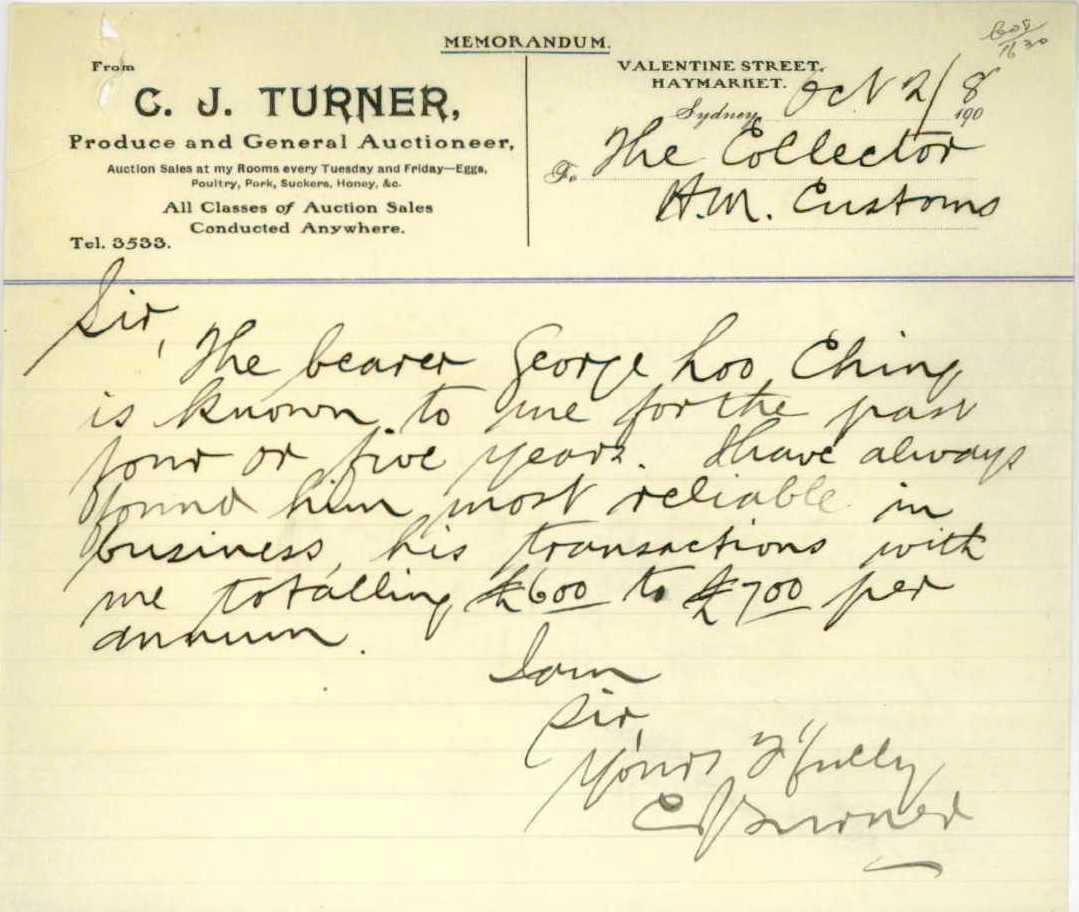 MEMORANDUM.
From
C. J. TURNER,
Produce and General Auctioneer,
Auction Sales at my Rooms every Tuesday and Friday—Eggs,
Poultry, Pork, Suckers, Honey, &c.
All Classes of Auction Sales
Conducted Anywhere.
Tel. 3533.
VALENTINE STREET,
HAYMARKET.
Sydney, Oct 2/ 1908
To The Collector
H.M. Customs
Sir,
The bearer George Loo Ching
is known to me for the past
four or five years. I have always
found him most reliable in
business, his transactions with
me totalling £600 to £700 per
annum.
I am
Sir,
Yours F'fully
C J Turner